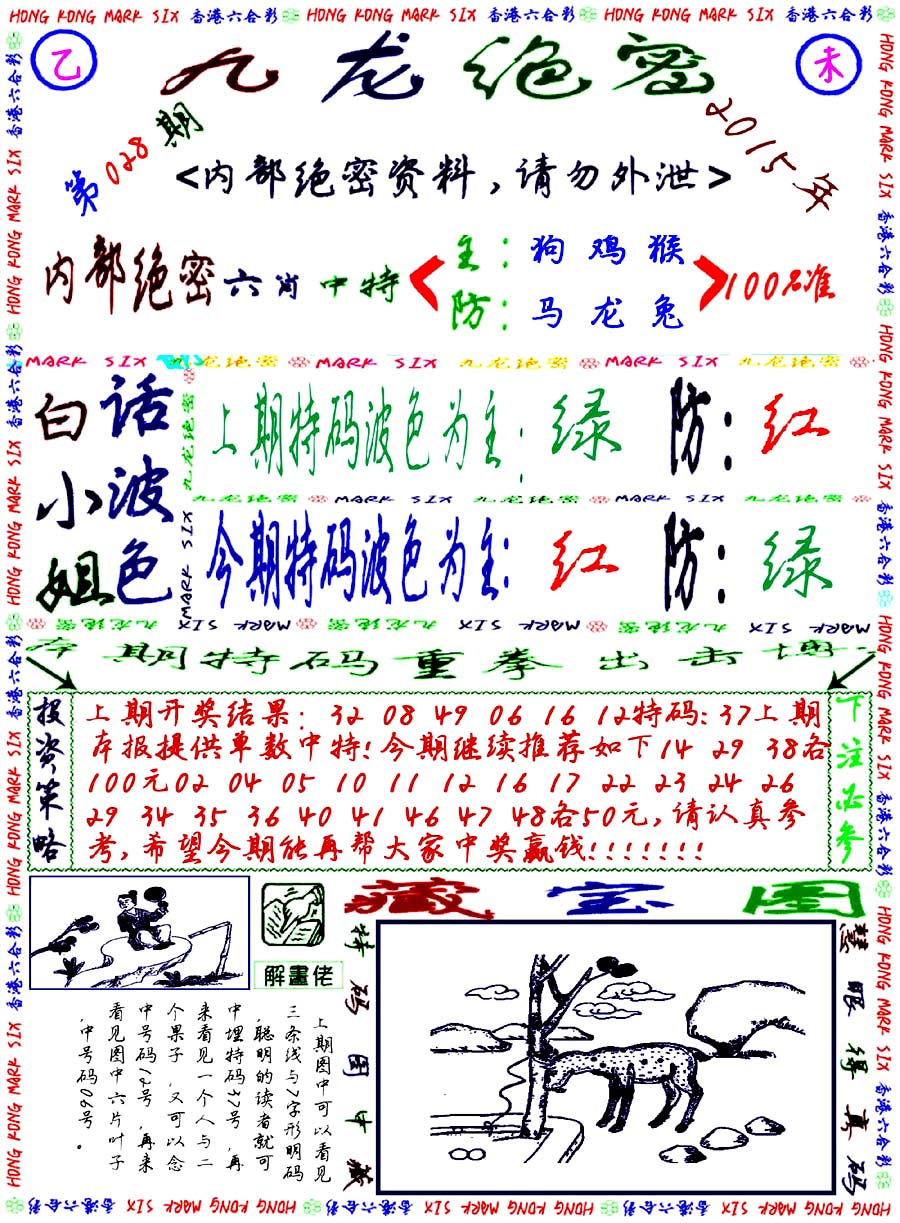 HONG KONG MARK SIX 香港六合彩 HONG KONG MARK SIX 香港六合彩 HONG KONG MARK SIX 香港六合彩
乙
九龙绝密
未
第028期
2015年
<内部绝密资料,请勿外泄>
内部绝密六肖中特
主:狗 鸡 猴
防:马 龙 兔
100%准
MARK SIX 九龙绝密 MARK SIX 九龙绝密 MARK SIX 九龙绝密
白话
小波
姐色
上期特码波色为主:绿 防:红
九龙绝密 MARK SIX 九龙绝密 MARK SIX 九龙绝密
今期特码波色为主:红 防:绿
九龙绝密 MARK SIX 九龙绝密 MARK SIX 九龙绝密 MARK SIX
本期特码重拳出击博
投资策略
上期开奖结果:32 08 49 06 16 12特码:37上期
本报提供单数中特!今期继续推荐如下14 29 38各
100元02 04 05 10 11 12 16 17 22 23 24 26
29 34 35 36 40 41 46 47 48各50元,请认真参
考,希望今期能再帮大家中奖赢钱!!!!!!!
下注必参
藏宝图
解畫佬
上期图中可以看见
三条线与7字形明码
,聪明的读者就可
中埋特码37号,再
来看见一个人与二
个果子,又可以念
中号码12号,再来
看见图中六片叶子
,中号码06号。
特码图中藏
慧眼得真码
HONG KONG MARK SIX 香港六合彩 HONG KONG MARK SIX 香港六合彩 HONG KONG MARK SIX 香港六合彩